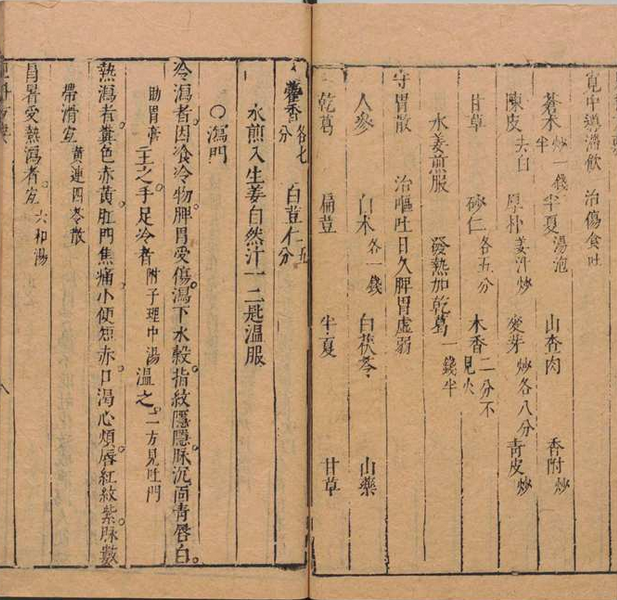 寬中導滯飲 治傷食吐
蒼朮炒一錢半 半夏湯泡 山查肉 香附炒
陳皮去白 厚朴姜汁炒 麥芽炒各八分 青皮炒
甘草 砂仁各五分 木香二分不見火
水姜煎服 發熱加乾葛一錢半
守胃散 治嘔吐日久脾胃虛弱
人參 白朮各一錢 白茯苓 山藥
乾葛 扁荳 半夏 甘草
藿香各七分 白荳仁五分
水煎入生姜自然汁一二匙溫服
○瀉門
冷瀉者因飡冷物脾胃受傷瀉下水穀指紋隱隱脉沉面青唇白
助胃膏主之手足冷者附子理中湯溫之二方見吐門
熱瀉者糞色赤黃肛門焦痛小便短赤口渴心煩唇紅紋紫脉數
帶滑宜黃連四苓散
冒暑受熱瀉者宜六和湯